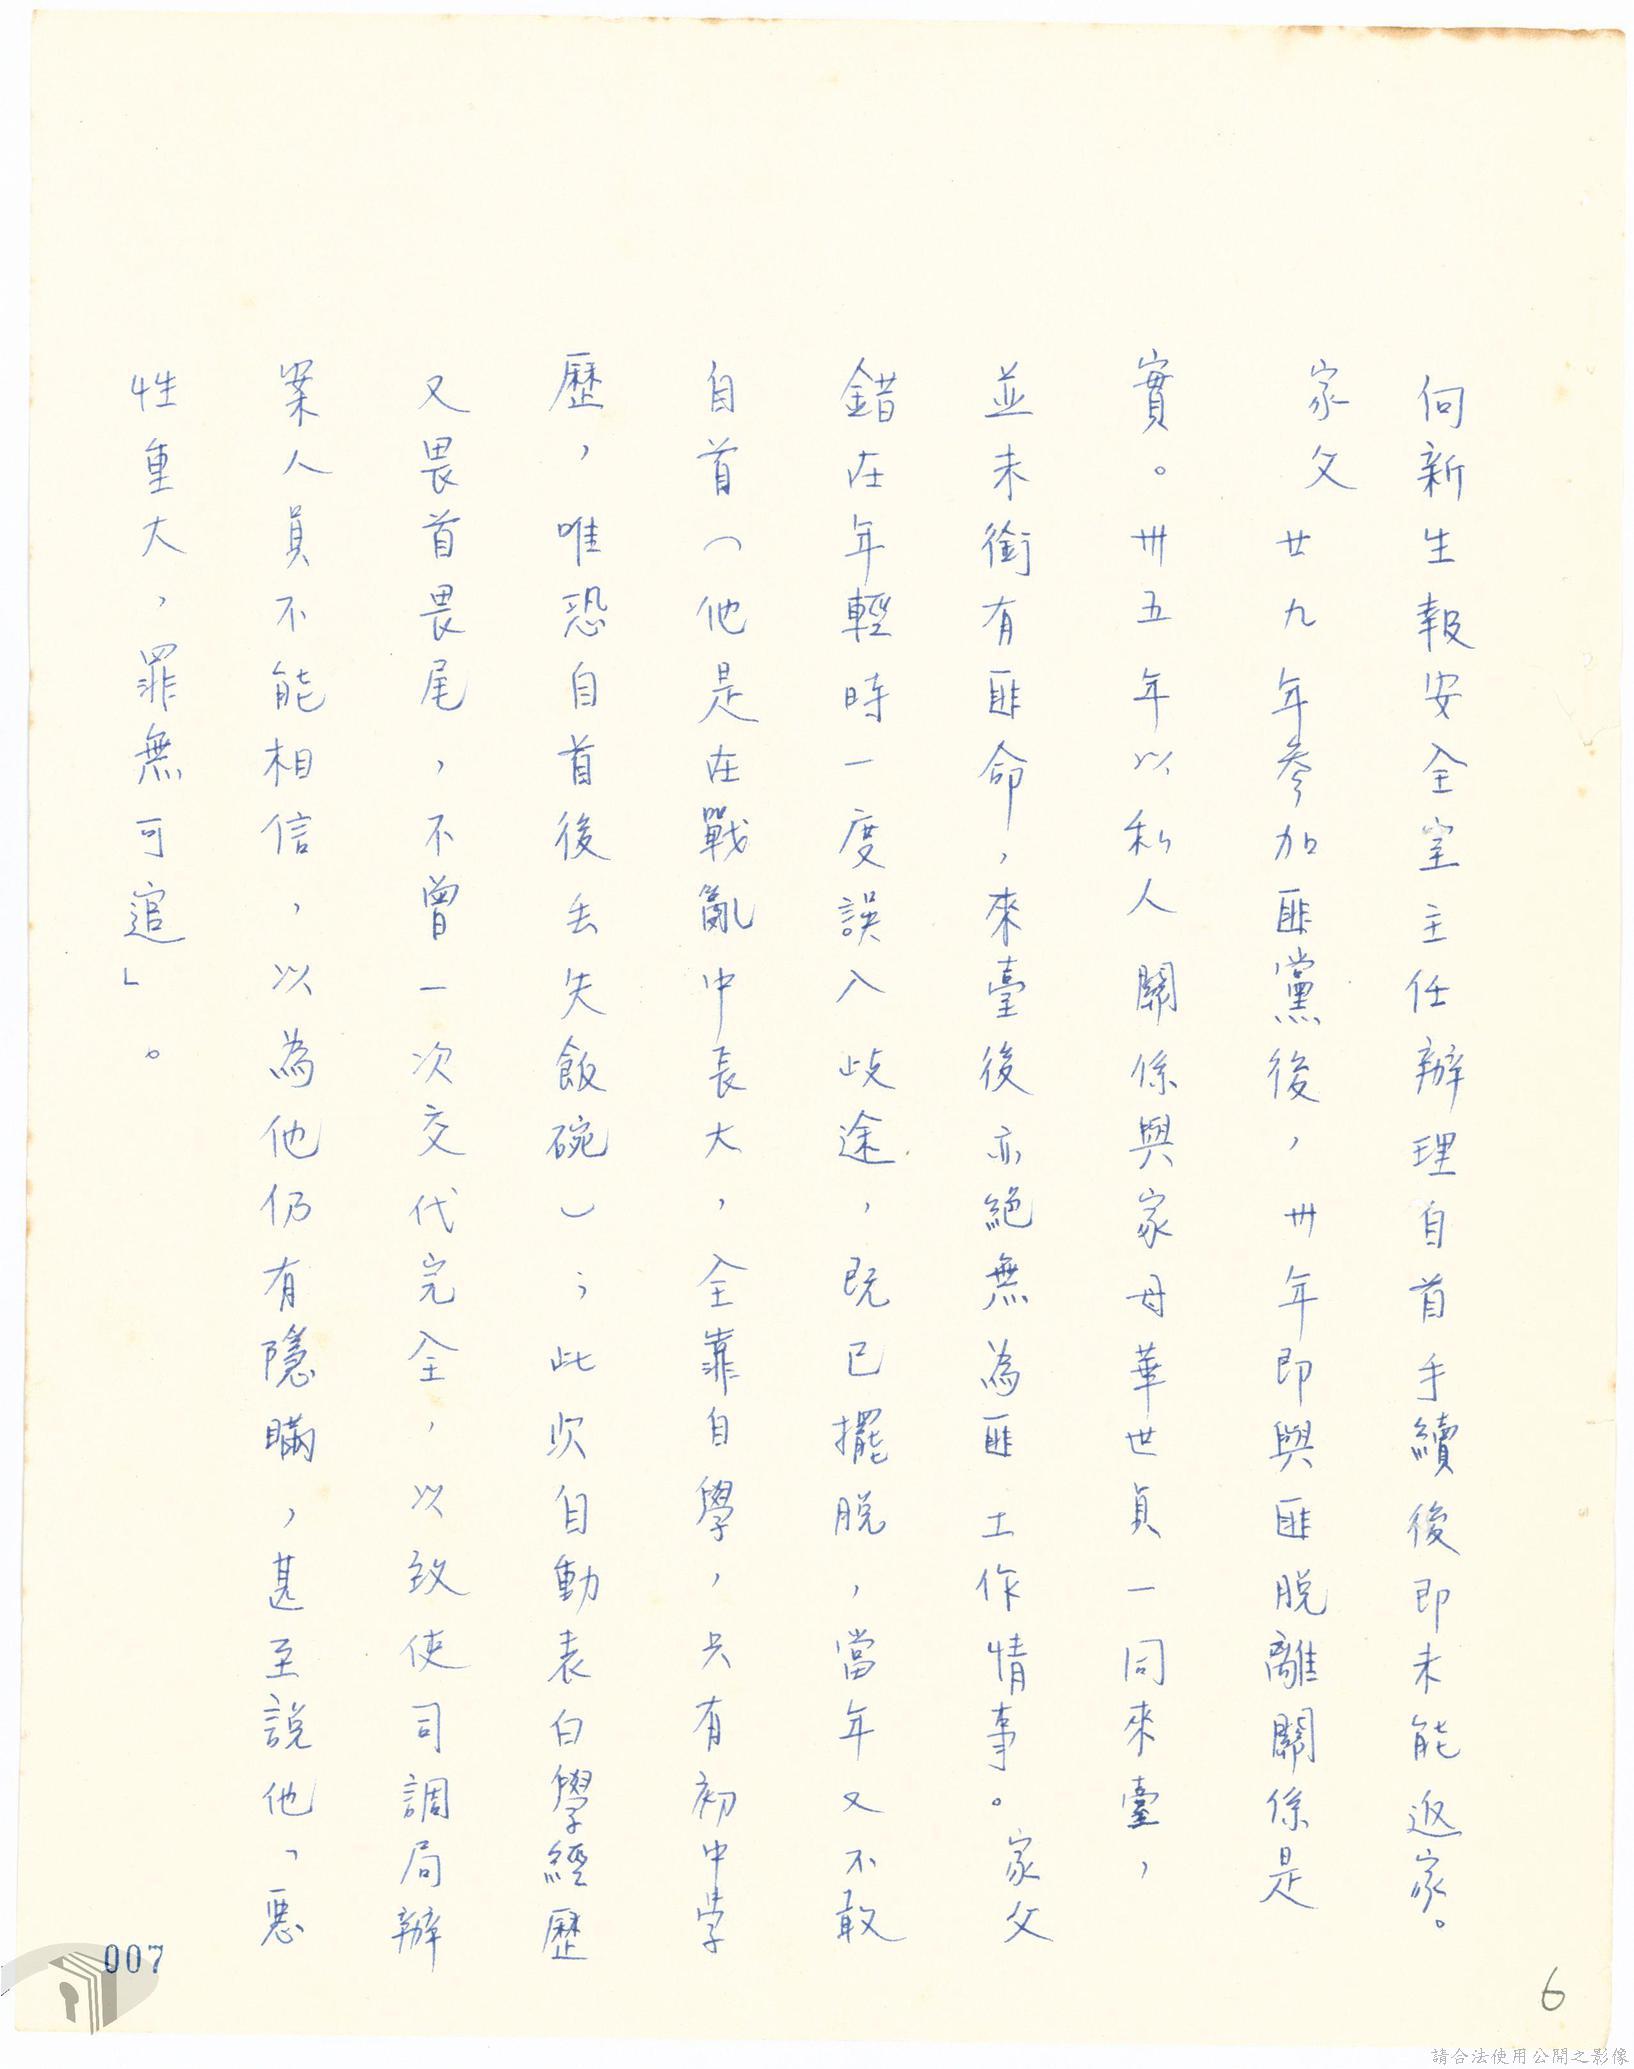 向新生報安全室主任辦理自首手續後即未能返家。
家父廿九年參加匪黨後，卅年即與匪脫離關係是
實。卅五年以私人關係與家母華世貞一同來臺，
並未銜有匪命，來臺後亦絕無為匪工作情事。家父
錯在年輕時一度誤入歧途，既已擺脫，當年又不敢
自首（他是在戰亂中長大，全靠自學，只有初中学
歷，唯恐自首後丢失飯碗）；此次自動表白學經歷
又畏首畏尾，不曾一次交代完全，以致使司調局辦
案人員不能相信，以為他仍有隱瞞，甚至說他「惡
性重大，罪無可逭」。
007
6
請合法使用公開之影像